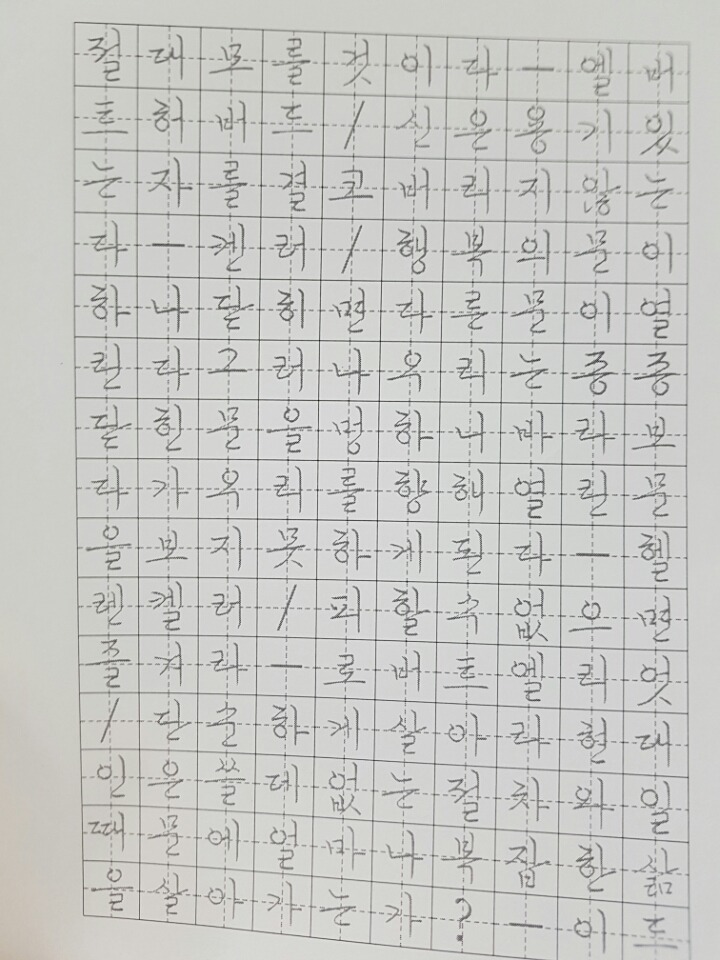 절대모를것이라ー엘버
트허버트/신은용기있
는자를결코버리지않는
다ー켄러/행복의문이
하나닫히면다른문이열
린다그러나우리는종종
닫힌문을멍하니바라보
다가우리를향해열린문
을보지못하게된다ー헬
렌켈러/피할수없으면
즐겨라ー로버트엘리엇
/단순하게살아라현대
인은쓸데없는절차와일
때문에얼마나복잡한삶
을살아가는가?ー이드